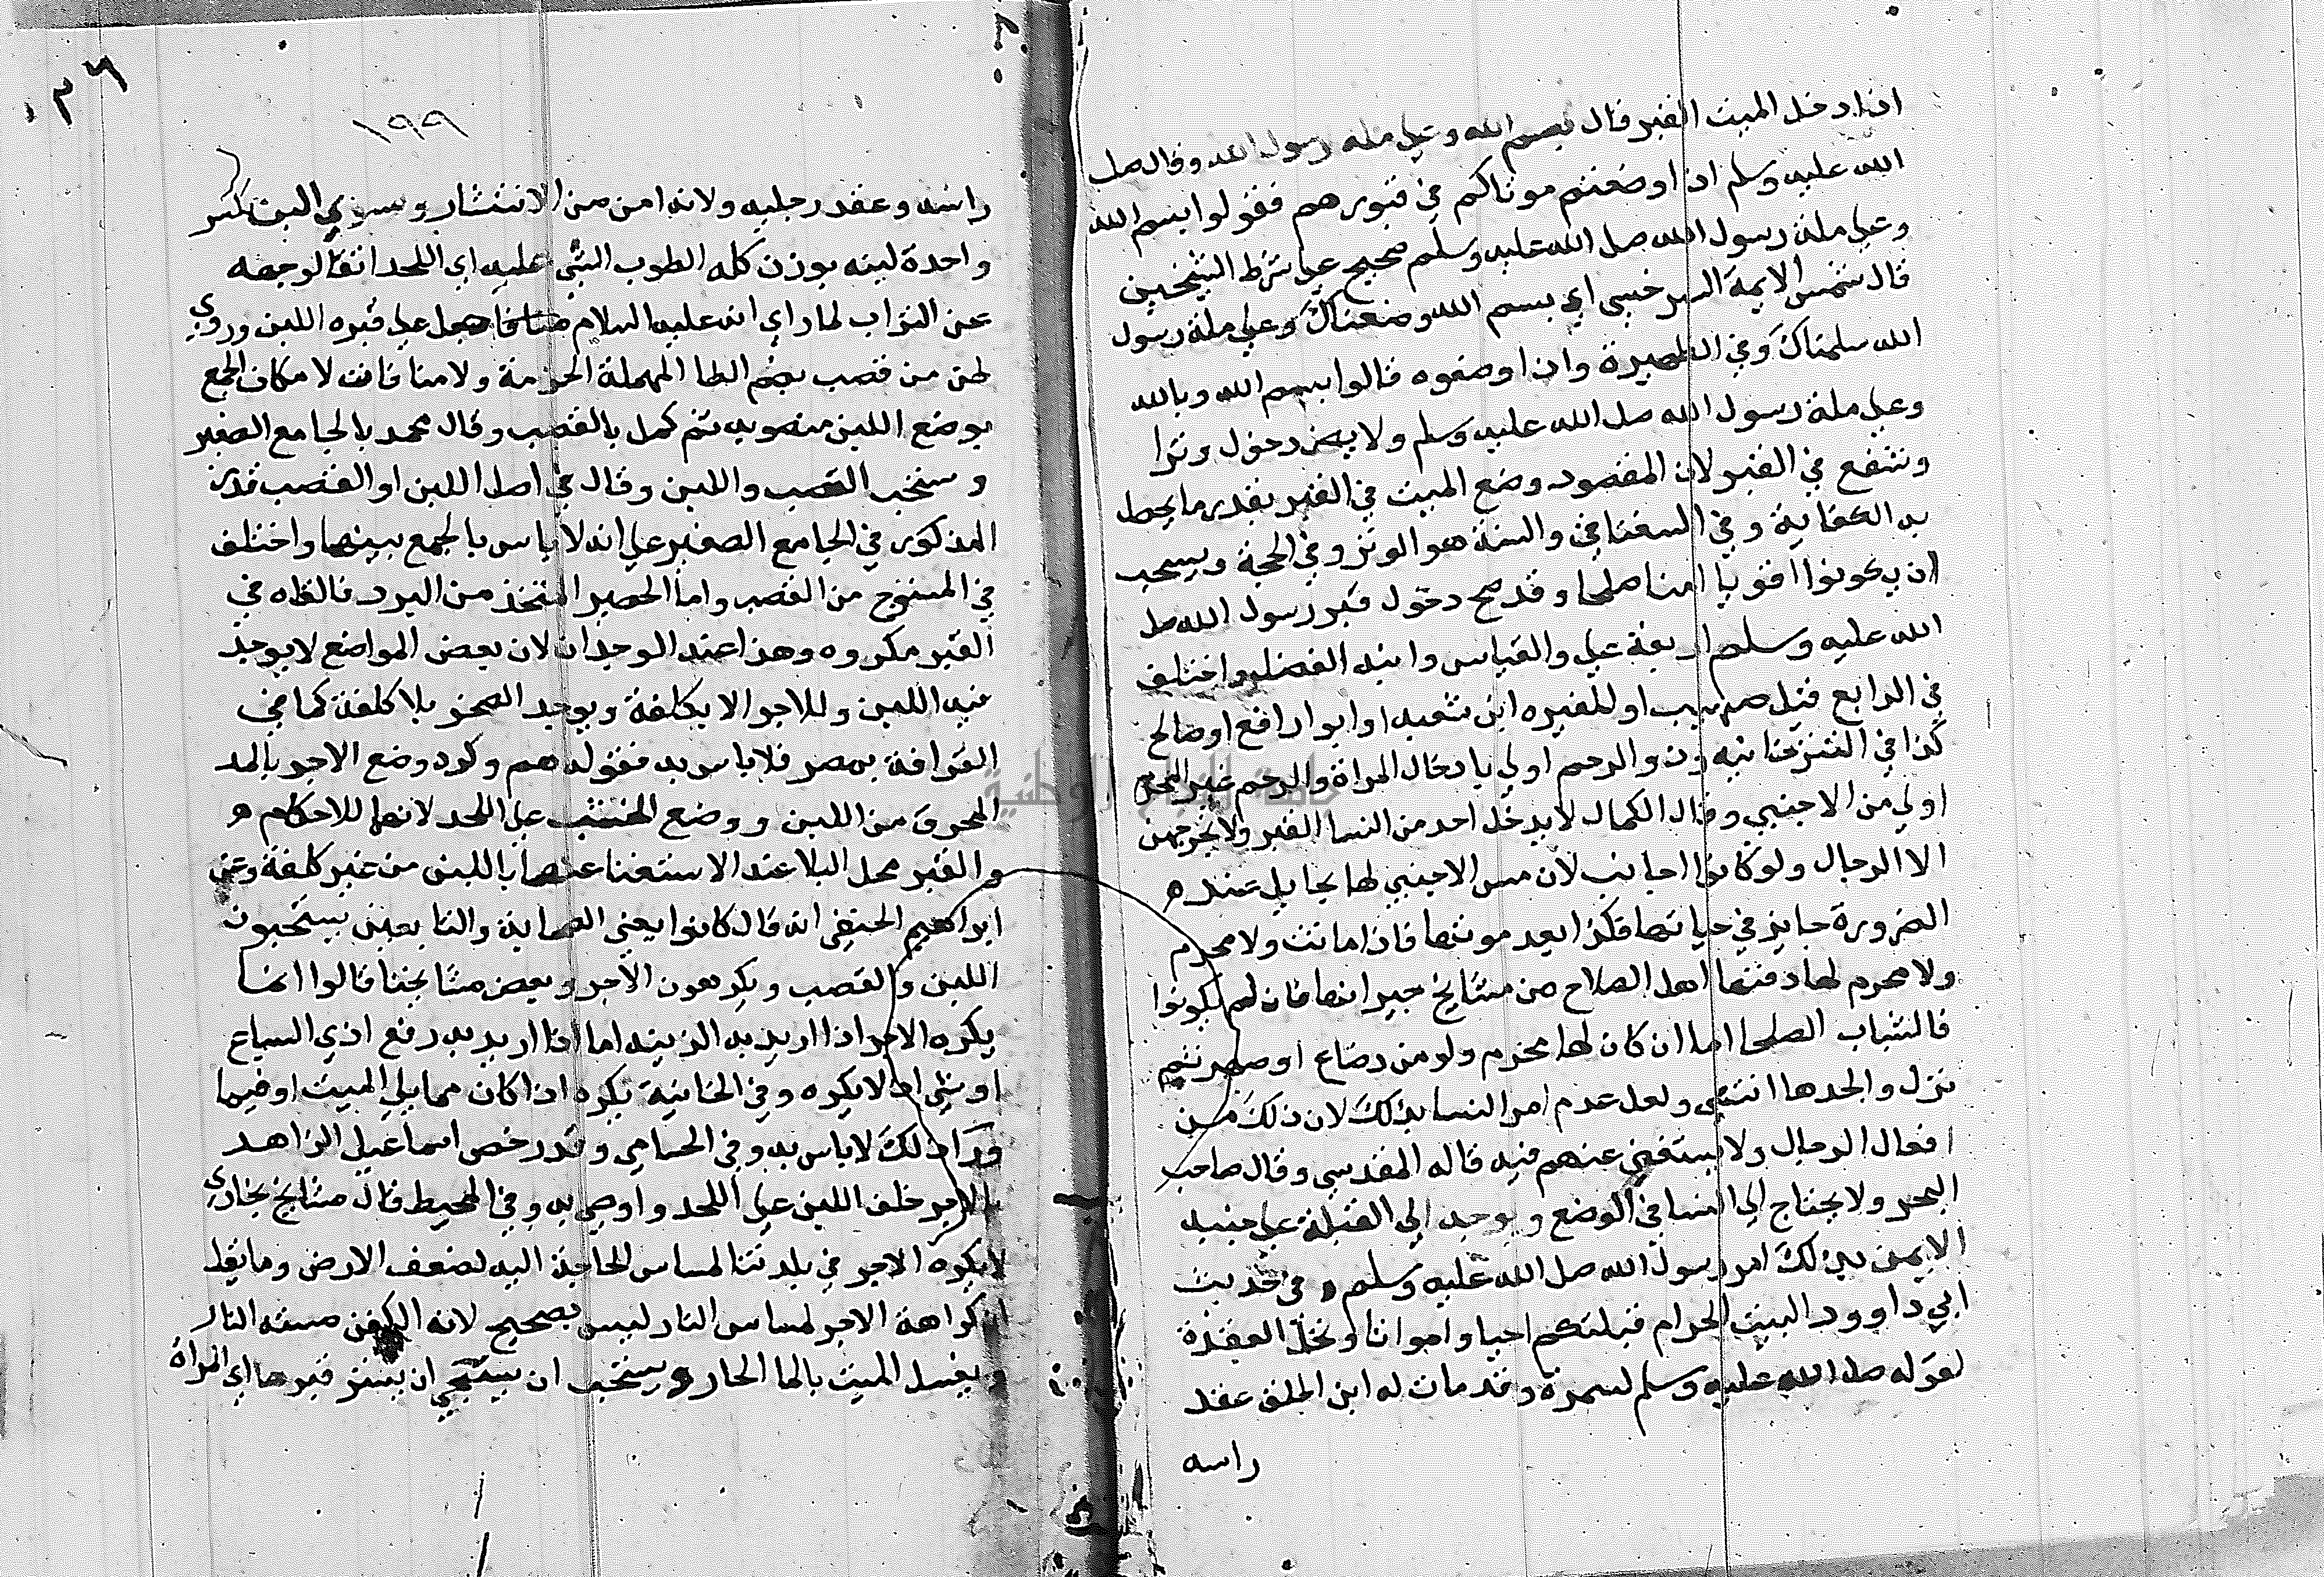 اذا ادخل الميت القبر قال بسم الله وعلى ملة رسول الله وقال صلى
الله عليه وسلم اذا وضعتم موتاكم في قبورهم فقولوا بسم الله
وعلى ملة رسول الله صلى الله عليه وسلم صحيح على شرط الشيخين
قال شمس الايمة السرخسي اي بسم الله وضعناك وعلى ملة رسول
الله سلمناك وفي الظهيرة واذا وضعوه قالوا بسم الله وبالله
وعلى ملة رسول الله صلى الله عليه وسلم ولا يضر دخول وترا
وشفع في القبر لان المقصود وضع الميت في القبر بقدر ما يحصل
به الكفاية وفي السغناقي والسنة هو الوتر وفي الحجة ويستحب
ان يكونوا اقويا امنا صلحا وقد صح دخول قبر رسول الله صلى
الله عليه وسلم اربعة علي والقباس وابنه الفضل واختلف
في الرابع قيل صهيب او المغيره ابن شعبه او ابوا رافع او صالح
كذا في التترخانيه وذو الرحم اولى بادخال المراة والرحم غير المحرم
اولي من الاجنبي وقال الكمال لا يدخل احد من النسا القبر ولا يخرجهن
الا الرجال ولو كانوا اجانب لان مس الاجنبي لها بحايل عنده
الضرورة جايز في حياتها فكذا بعد موتها فاذا ماتت ولا محرم
ولا محرم لها دفنها اهل الصلاح من مشايخ جيرانها فان لم يكونوا
فالشباب الصلحا اما ان كان لها محرم ولو من رضاع او صهر تيم
نزل والحدها انتهى ولعل عدم امر النسا بذلك لان ذلك من
افعال الرجال ولا يستغني عنهم فيه قاله المقدسي وقال صاحب
البحر ولا يحتاج الي النسا في الوضع ويوجه الي القبلة على جنبه
الايمن بذلك امر رسول الله صلى الله عليه وسلم وفي حديث
ابي داوود البيت الحرام قبلتكم احيا وامواتا وتحل العقدة
لقوله صلى الله عليه وسلم لسمرة وقد مات له ابن اطلق عقد
راسه
٢٦
١٩٩
راسه وعقد رجليه ولانه امن من الانتشار ويسوي اللبن بكسر
واحدة لبنه بوزن كله الطوب الني عليه اي اللحد اتقا لوجهه
عن التراب لما راي انه عليه السلام جعل على قبره اللبن وروي
طن من قصب بضم الطا المهملة الحزمة ولا منافات لامكان الجمع
بوضع اللبن منصوبه ثم كمل بالقصب وقال محمد بالجامع الصغير
ويستحب القصب واللبن وقال في اصل اللبن او القصب فدل
المذكور في الجامع الصغير على انه لا باس بالجمع بينهما واختلف
في المنسوج من القصب واما الحصير المتخذ من البرد فالقاه في
القبر مكروه وهذا عند الوجدان لان بعض المواضع لا يوجد
فيه اللبن وللاجر الا بكلفة ويوجد الصخر بلا كلفة كما في
القرافة بمصر فلا باس به فقولهم وكره وضع الاجر بالمد
المحرق من اللبن ووضع الخشب على اللحد لانها للاحكام
والقبر محل البلا عند الاستغنا عنها باللبن من غير كلفة وعن
ابراهيم الحنفي انه قال كانوا يعني الصحابة والتابعين يستحبون
اللبن والقصب ويكرهون الاجر وبعض مشايخنا قالوا انما
يكره الاجر اذا اريد به الزينه اما اذا اريد به رفع اذي السباع
او شي اخر لا يكره وفي الخانية يكره اذا كان مما يلي الميت او فيما
ورا ذلك لا باس به وفي الحسامي وقد رخص اسماعيل الزاهد
بالاجر خلف اللبن على اللحد واوصي به وفي المحيط قال مشايخ بخاري
لا يكره الاجر في بلدتنا لمساس الحاجة اليه لضعف الارض وما نقل
ان كراهة الاجر لمساس النار ليس بصحيح لانه الكفن مسته النار
ويغسل الميت بالما الحار ويستحب ان يسجي ان يستر قبرها اي المراة